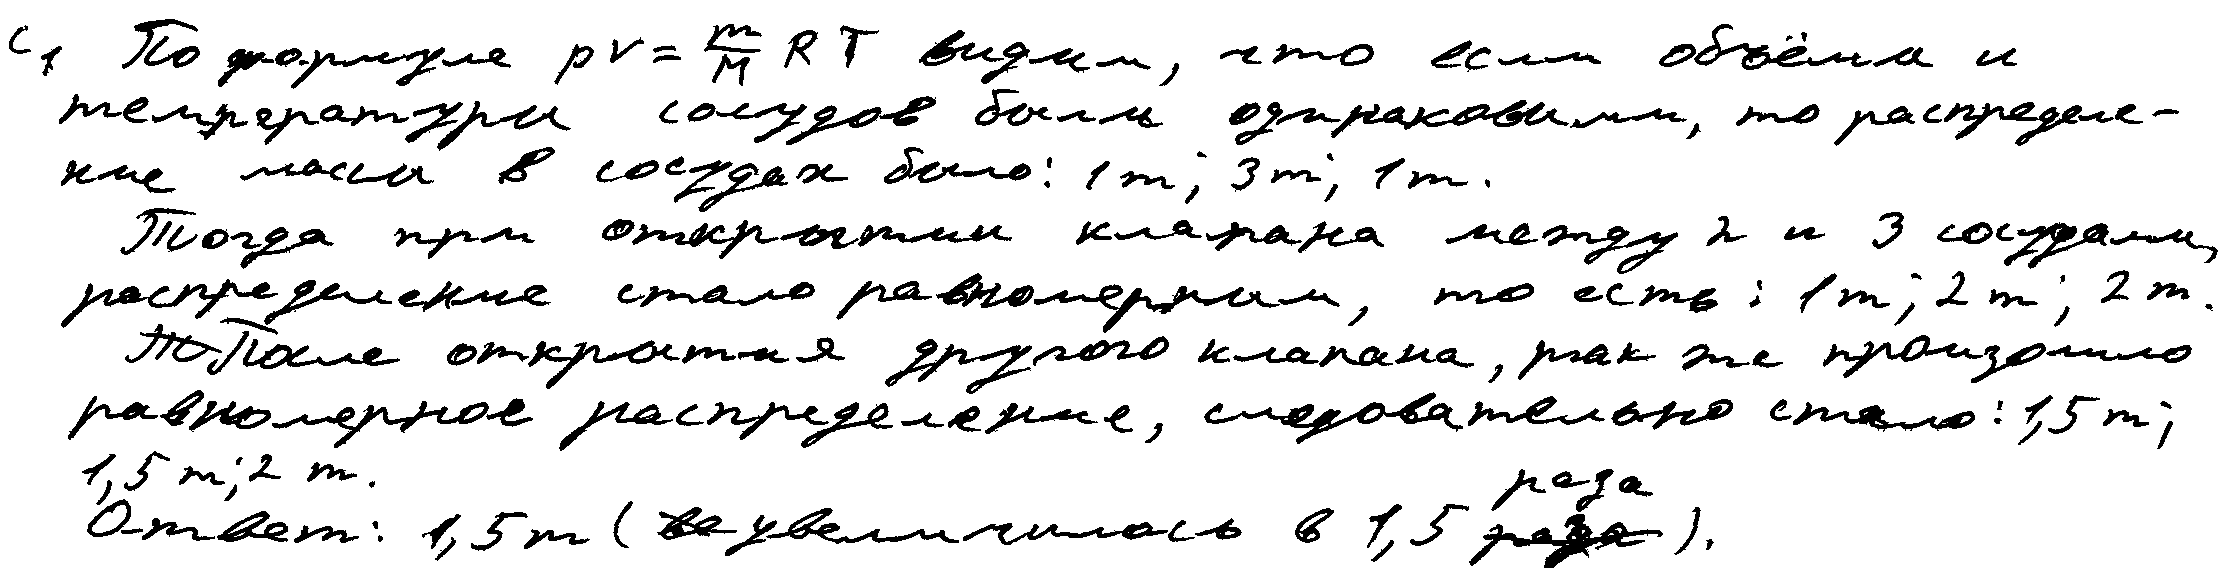 С1 По формуле pV = m/M RT видим, что если объёмы и
температуры сосудов были одинаковыми, то распределе-
ние массы в сосудах было: 1m; 3m; 1m.
Тогда при открытии клапана между 2 и 3 сосудами,
распределение стало равномерным, то есть: 1m; 2m; 2m.
После открытия другого клапана, так же произошло
равномерное распределение, следовательно стало: 1,5m;
1,5m; 2m.
Ответ: 1,5m (увеличилась в 1,5 раза).